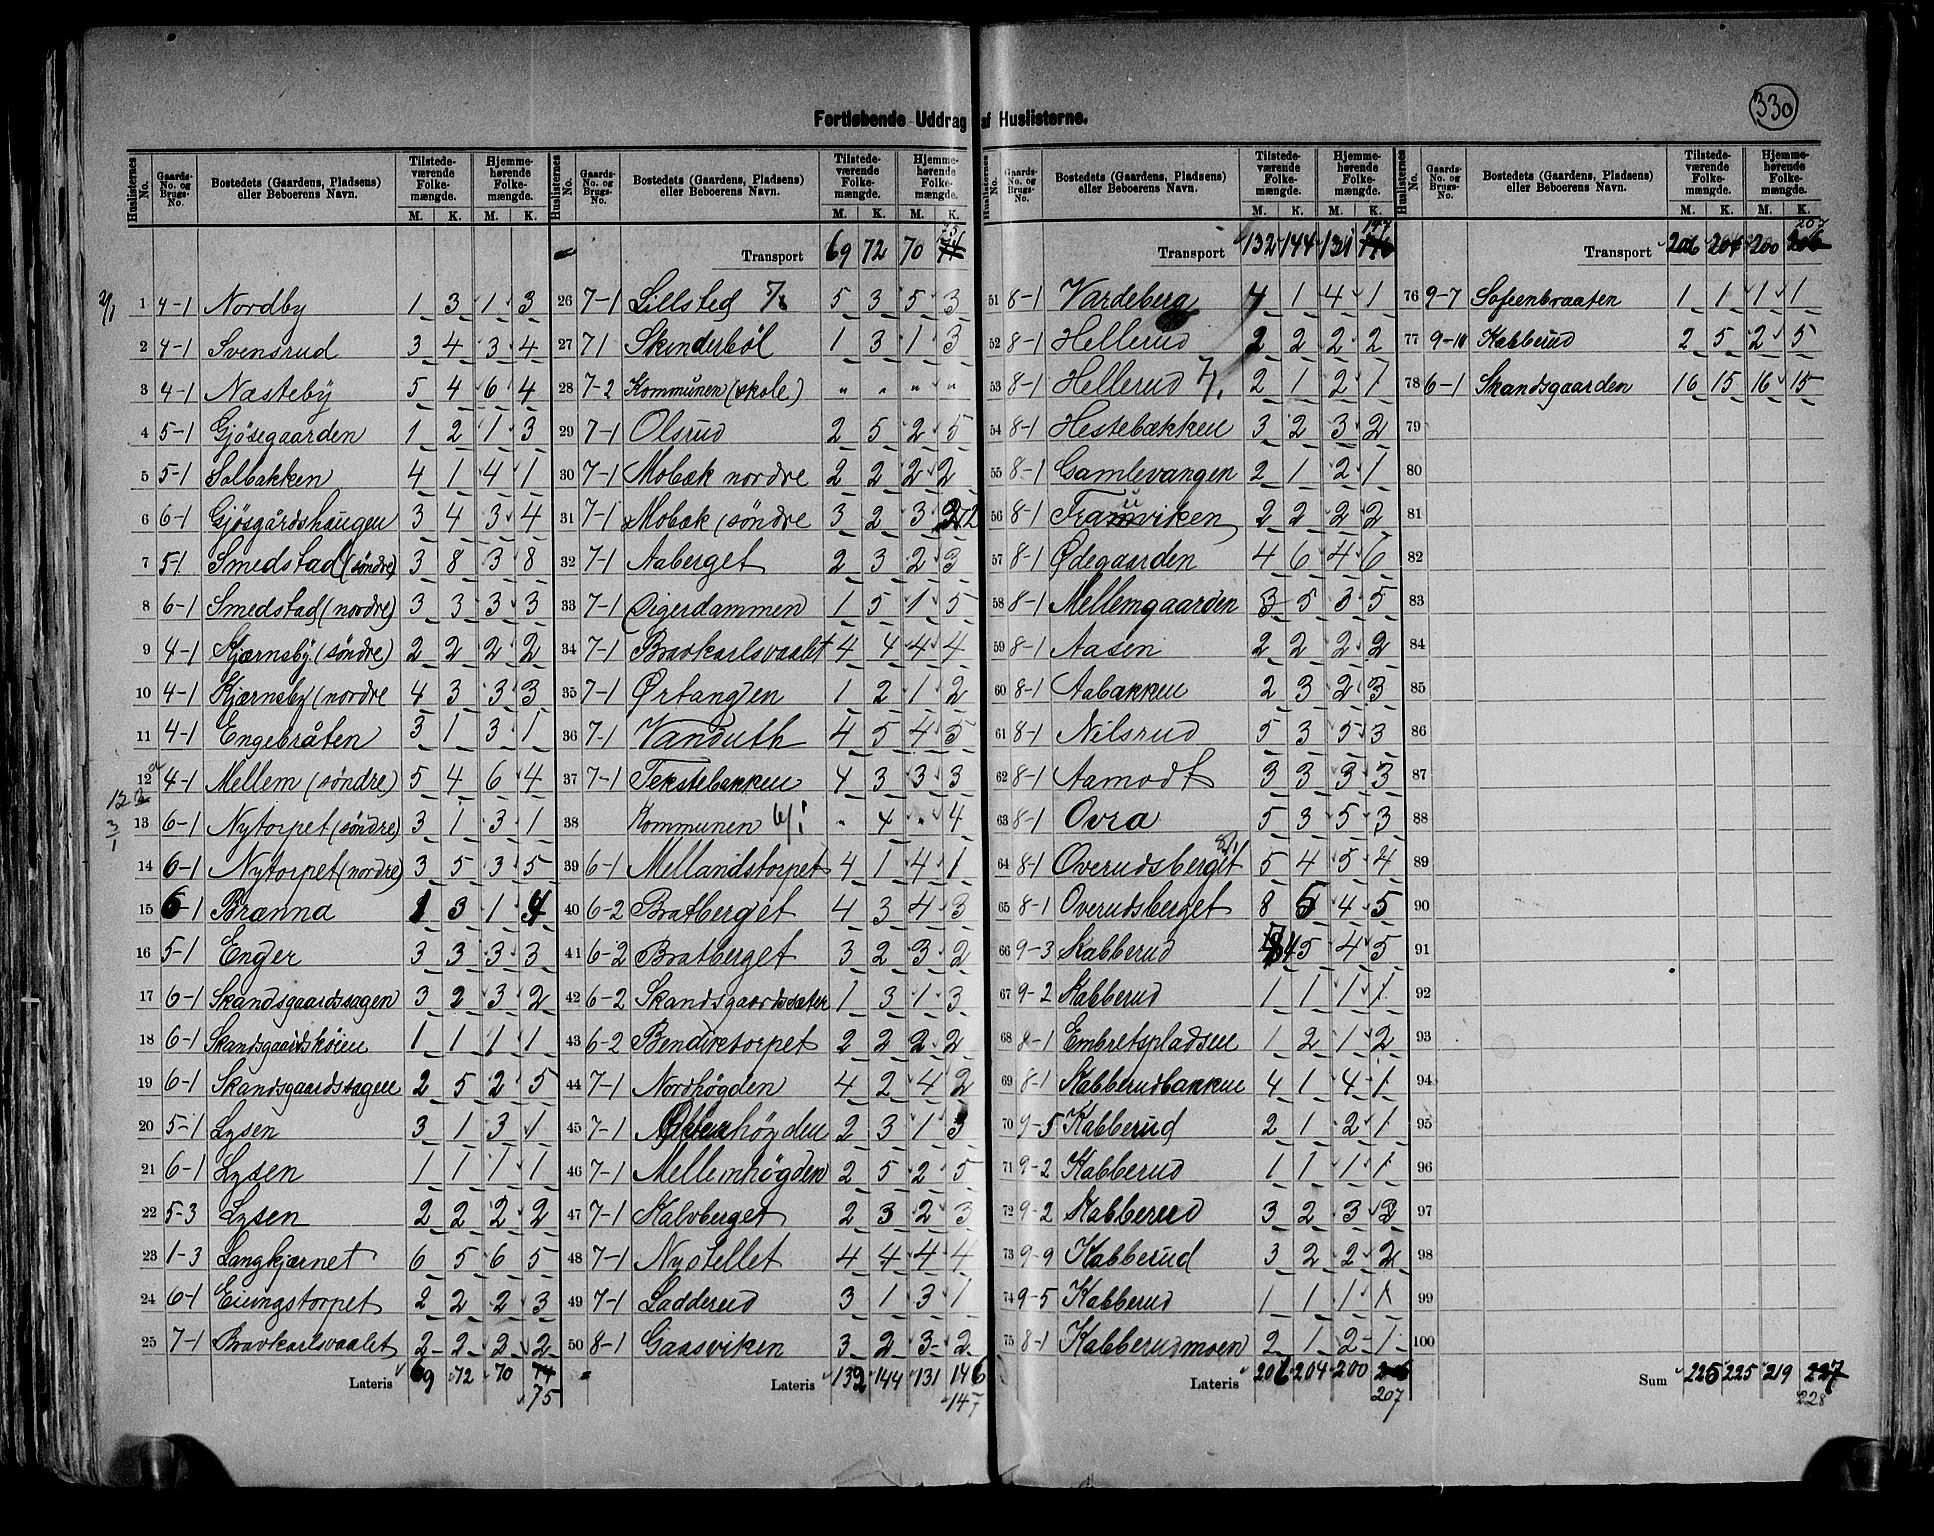 330
Fortløbende Uddrag af Huslisterne.
Huslisternes No. Gaards-No. og Brugs-No. Bostedets (Gaardens, Pladsens) eller Beboerens Navn. Tilstedeværende Folkemængde. M. K. Hjemmehørende Folkemængde. M. K.
1 4-1 Nordby 1 3 1 3
2 4-1 Svensrud 3 4 3 4
3 4-1 Næsteby 5 4 6 4
4 5-1 Gjøsegaarden 1 2 1 3
5 5-1 Solbakken 4 1 4 1
6 6-1 Gjøsgårdshaugen 3 4 3 4
7 5-1 Smedstad (søndre) 3 8 3 8
8 6-1 Smedstad (nordre) 3 3 3 3
9 4-1 Kjærnsby (søndre) 2 2 2 2
10 4-1 Kjærnsby (nordre 4 3 3 3
11 4-1 Engebråten 3 1 3 1
12 4-1 Mellem (søndre) 5 4 6 4
13 6-1 Nytorpet (søndre) 3 1 3 1
14 6-1 Nytorpet (nordre) 3 5 3 5
15 6-1 Brænna 1 3 1 4
16 5-1 Enger 3 3 3 3
17 6-1 Skandsgaardssagen 3 2 3 2
18 6-1 Skandsgaardskøien 1 1 1 1
19 6-1 Skandsgaardssagen 2 5 2 5
20 5-1 Lysen 3 1 3 1
21 6-1 Lysen 1 1 1 1
22 5-3 Lysen 2 2 2 2
23 1-3 Langkjærnet 6 5 6 5
24 6-1 Eiungstorpet 2 2 2 3
25 7-1 Bravkarlsvaalet 2 2 2 2
Lateris 69 72 70 74
75
Huslisternes No. Gaards-No. og Brugs-No. Bostedets (Gaardens, Pladsens) eller Beboerens Navn. Tilstedeværende Folkemængde. M. K. Hjemmehørende Folkemængde. M. K.
75
Transport 69 72 70 74
26 7-1 Lillsted 5 3 5 3
27 71 Skinderbøl 1 3 1 3
28 7-2 Kommunen (skole) " " " "
29 7-1 Olsrud 2 5 2 5
30 7-1 Mobæk nordre 2 2 2 2
31 7-1 Mobæk (søndre 3 2 3 2
32 7-1 Aaberget 2 3 2 3
33 7-1 Digerdammen 1 5 1 5
34 7-1 Bravkarlsvaalet 4 4 4 4
35 7-1 Ørtangen 1 2 1 2
36 7-1 Vanduth 4 5 4 5
37 7-1 Tekstebakken 4 3 3 3
38 Kommunen 6/1 " 4 " 4
39 6-1 Mellandstorpet 4 1 4 1
40 6-2 Bratberget 4 3 4 3
41 6-2 Bratberget 3 2 3 2
42 6-2 Skandsgaardssæter 1 3 1 3
43 6-2 Bendixtorpet 2 2 2 2
44 7-1 Nordhøgden 4 2 4 2
45 7-1 2 3 1 3
46 7-1 Mellemhøgden 2 5 2 5
47 7-1 Kalvberget 2 3 2 3
48 7-1 Nystellet 4 4 4 4
49 7-1 Ladderud 3 1 3 1
50 8-1 Gaasviken 3 2 3 2
Lateris 132 144 131 146
147
Huslisternes No. Gaards-No. og Brugs-No. Bostedets (Gaardens, Pladsens) eller Beboerens Navn. Tilstedeværende Folkemængde. M. K. Hjemmehørende Folkemængde. M. K.
147
Transport 132 144 131 146
51 8-1 Vardeberg 4 1 4 1
52 8-1 Hellerud 2 2 2 2
53 8-1 Hellerud 2 1 2 1
54 8-1 Hestebækken 3 2 3 2
55 8-1 Gamlevangen 2 1 2 1
56 8-1 2 2 2 2
57 8-1 Ødegaarden 4 6 4 6
58 8-1 Mellemgaarden 3 5 3 5
59 8-1 Aasen 2 2 2 2
60 8-1 Aabakken 2 3 2 3
61 8-1 Nilsrud 5 3 5 3
62 8-1 Aamodt 3 3 3 3
63 8-1 Ovra 5 3 5 3
64 8-1 Overudsberget 5 4 5 4
65 8-1 Overudsberget 8 5 4 5
66 9-3 Kabberud 4 5 4 5
67 9-2 Kabberud 1 1 1 1
68 8-1 Embretspladsen 1 2 1 2
69 8-1 Kabberudbakken 4 1 4 1
70 9-5 Kabberud 2 1 2 1
71 9-2 Kabberud 1 1 1 1
72 9-2 Kabberud 3 2 3 2
73 9-9 Kabberud 3 2 2 2
74 9-5 Kabberud 1 1 1 1
75 8-1 Kabberudmoen 2 1 2 1
Lateris 206 204 200 206
207
Huslisternes No. Gaards-No. og Brugs-No. Bostedets (Gaardens, Pladsens) eller Beboerens Navn. Tilstedeværende Folkemængde. M. K. Hjemmehørende Folkemængde. M. K.
207
Transport 206 204 200 206
76 9-7 Sofienbraaten 1 1 1 1
77 9-10 Kabberud 2 5 2 5
78 6-1 Skandsgaarden 16 15 16 15
79
80
81
82
83
84
85
86
87
88
89
90
91
92
93
94
95
96
97
98
99
100
Sum 225 225 219 227
228